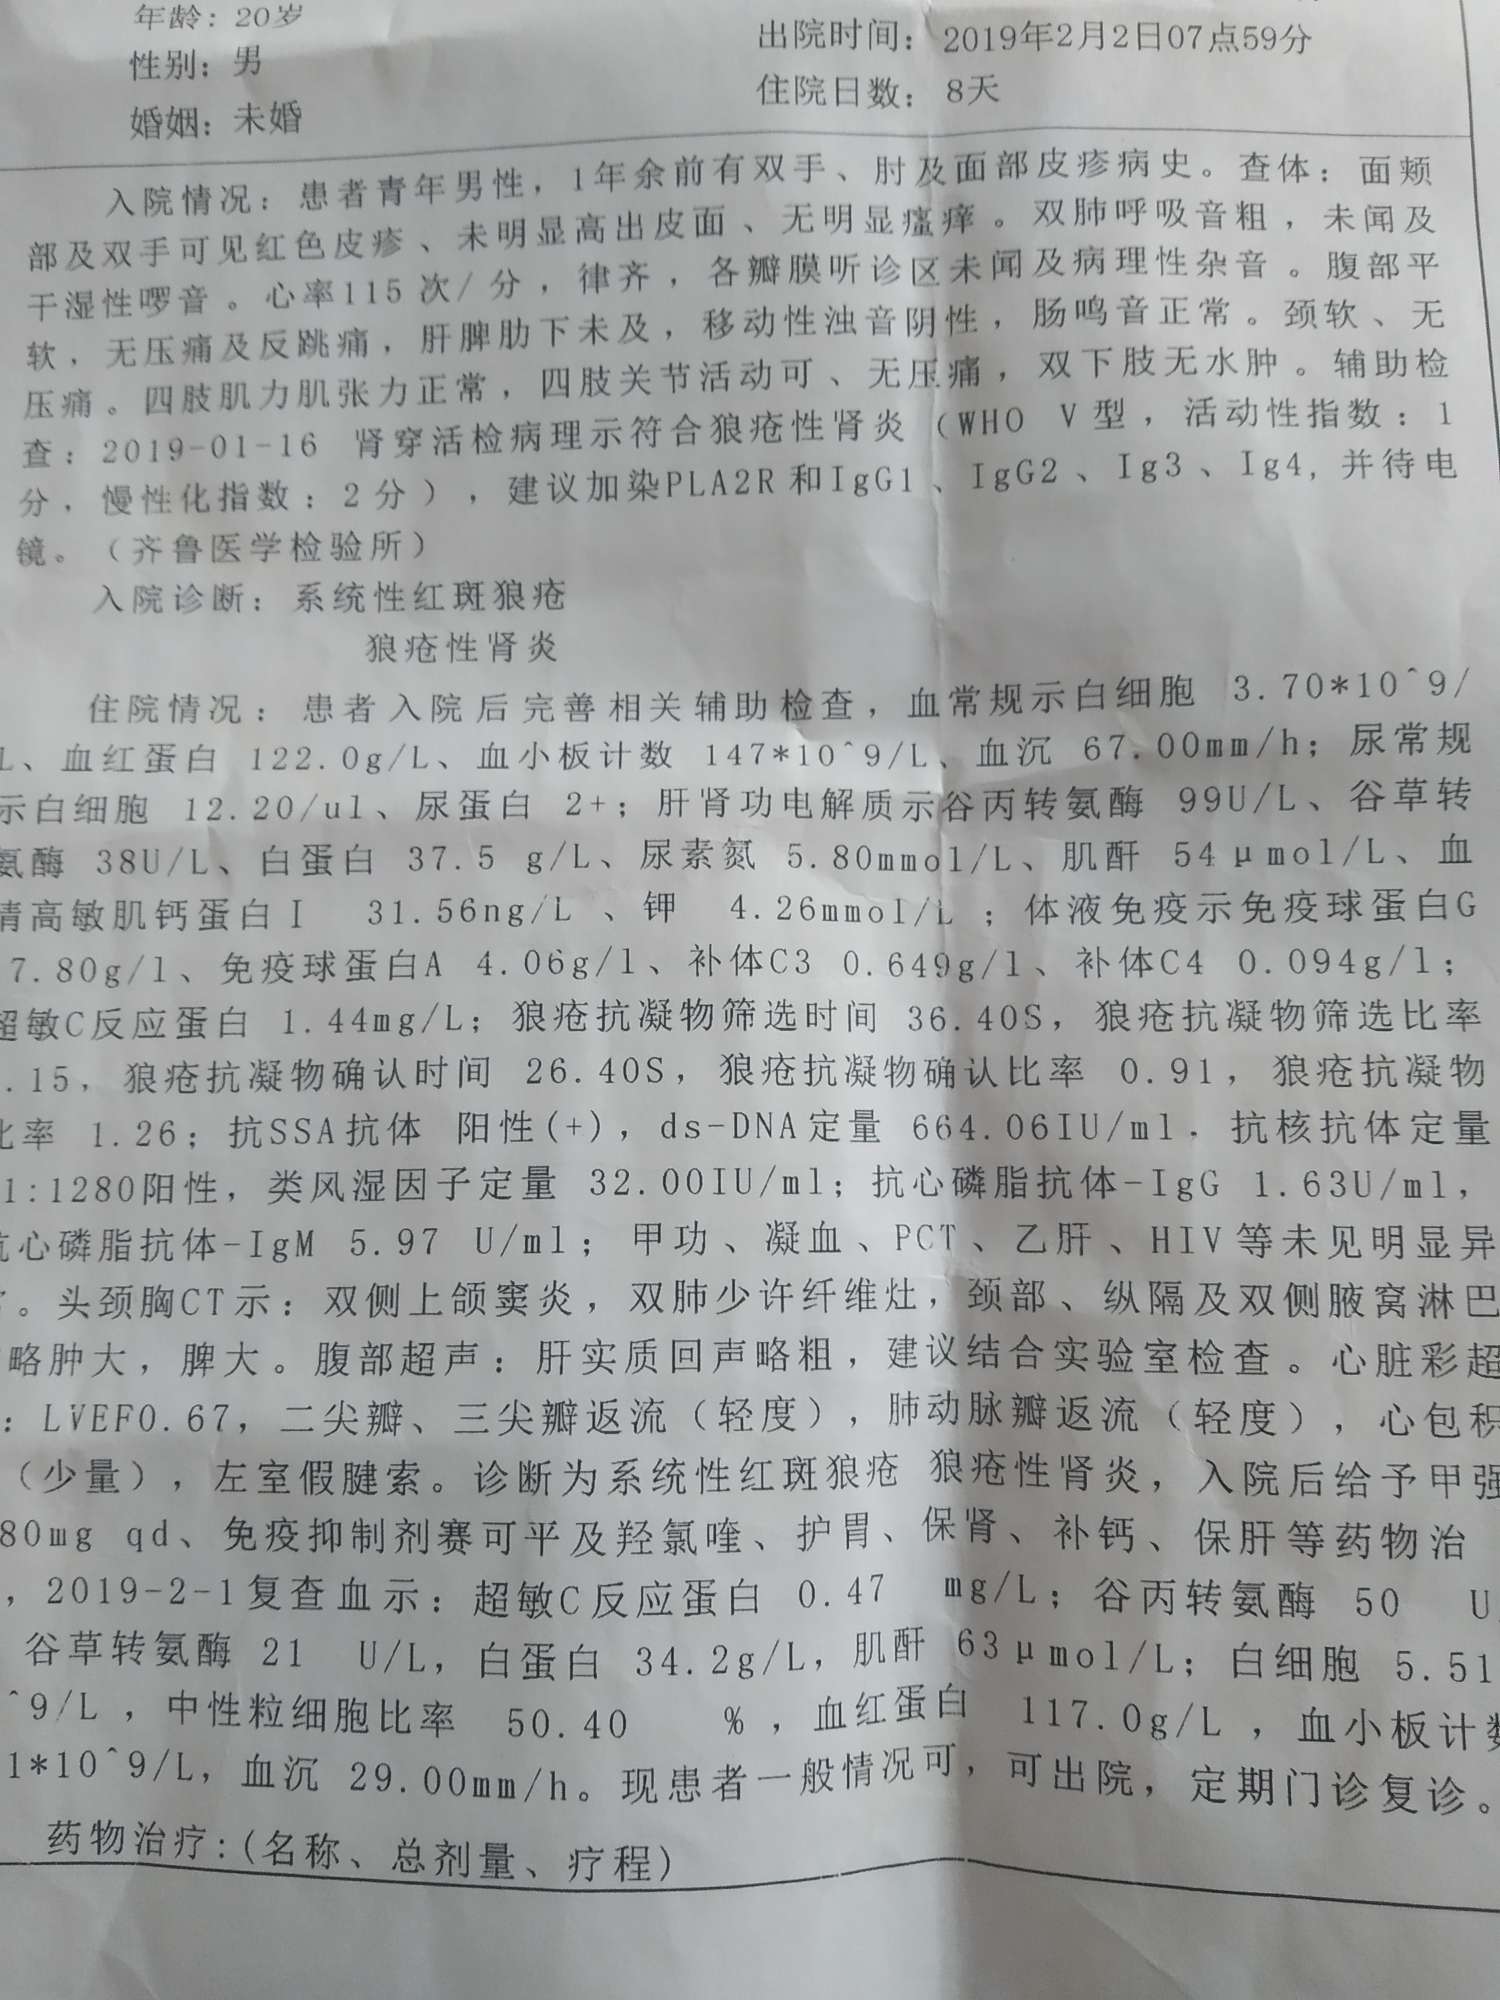 年龄: 20岁
出院时间: 2019年2月2日07点59分
性别: 男
住院日数: 8天
婚姻: 未婚
入院情况: 患者青年男性, 1年余前有双手、肘及面部皮疹病史。查体: 面颊
部及双手可见红色皮疹、未明显高出皮面、无明显瘙痒。双肺呼吸音粗, 未闻及
干湿性啰音。心率115次/分, 律齐, 各瓣膜听诊区未闻及病理性杂音。腹部平
软, 无压痛及反跳痛, 肝脾肋下未及, 移动性浊音阴性, 肠鸣音正常。颈软、无
压痛。四肢肌力肌张力正常, 四肢关节活动可、无压痛, 双下肢无水肿。辅助检
查: 2019-01-16 肾穿活检病理示符合狼疮性肾炎 (WHO V型, 活动性指数: 1
分, 慢性化指数: 2分), 建议加染PLA2R和IgG1、IgG2、Ig3、Ig4, 并待电
镜。(齐鲁医学检验所)
入院诊断: 系统性红斑狼疮
狼疮性肾炎
住院情况: 患者入院后完善相关辅助检查, 血常规示白细胞 3.70*10^9/
L、血红蛋白 122.0g/L、血小板计数 147*10^9/L、血沉 67.00mm/h; 尿常规
示白细胞 12.20/ul、尿蛋白 2+; 肝肾功电解质示谷丙转氨酶 99U/L、谷草转
氨酶 38U/L、白蛋白 37.5 g/L、尿素氮 5.80mmol/L、肌酐 54μmol/L、血
清高敏肌钙蛋白I 31.56ng/L 、钾 4.26mmol/L ; 体液免疫示免疫球蛋白G
7.80g/l、免疫球蛋白A 4.06g/l、补体C3 0.649g/l、补体C4 0.094g/l;
超敏C反应蛋白 1.44mg/L; 狼疮抗凝物筛选时间 36.40S, 狼疮抗凝物筛选比率
.15, 狼疮抗凝物确认时间 26.40S, 狼疮抗凝物确认比率 0.91, 狼疮抗凝物
比率 1.26; 抗SSA抗体 阳性(+), ds-DNA定量 664.06IU/ml, 抗核抗体定量
1:1280阳性, 类风湿因子定量 32.00IU/ml; 抗心磷脂抗体-IgG 1.63U/ml,
抗心磷脂抗体-IgM 5.97 U/ml; 甲功、凝血、PCT、乙肝、HIV等未见明显异
。头颈胸CT示: 双侧上颌窦炎, 双肺少许纤维灶, 颈部、纵隔及双侧腋窝淋巴
略肿大, 脾大。腹部超声: 肝实质回声略粗, 建议结合实验室检查。心脏彩超
: LVEF0.67, 二尖瓣、三尖瓣返流 (轻度), 肺动脉瓣返流 (轻度), 心包积
(少量), 左室假腱索。诊断为系统性红斑狼疮 狼疮性肾炎, 入院后给予甲强
80mg qd、免疫抑制剂赛可平及羟氯喹、护胃、保肾、补钙、保肝等药物治
, 2019-2-1复查血示: 超敏C反应蛋白 0.47 mg/L; 谷丙转氨酶 50 U
谷草转氨酶 21 U/L, 白蛋白 34.2g/L, 肌酐 63μmol/L; 白细胞 5.51
^9/L , 中性粒细胞比率 50.40 % , 血红蛋白 117.0g/L , 血小板计数
1*10^9/L, 血沉 29.00mm/h。现患者一般情况可, 可出院, 定期门诊复诊。
药物治疗: (名称、总剂量、疗程)